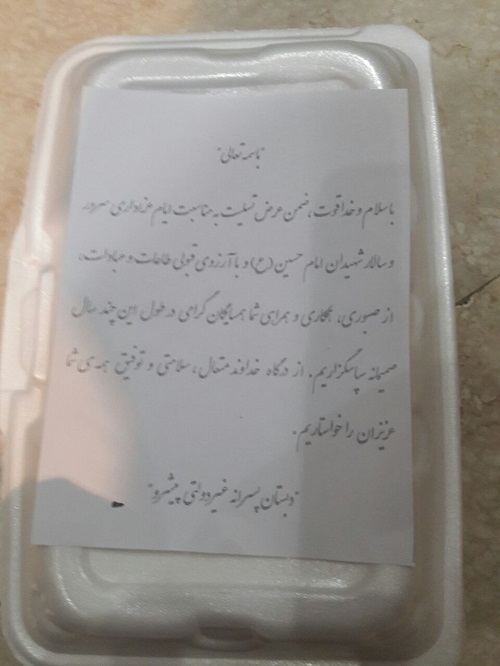 باسمه تعالی
با سلام و خدا قوت، ضمن عرض تسلیت به مناسبت ایام عزاداری سرور
و سالار شهیدان امام حسین (ع) و با آرزوی قبولی طاعات و عبادات،
از صبوری، همکاری و همراهی شما همسایگان گرامی در طول این چند سال
صمیمانه سپاسگزاریم. از درگاه خداوند متعال، سلامتی و توفیق همه ی شما
عزیزان را خواستاریم.
"دبستان پسرانه غیردولتی پیشرو"